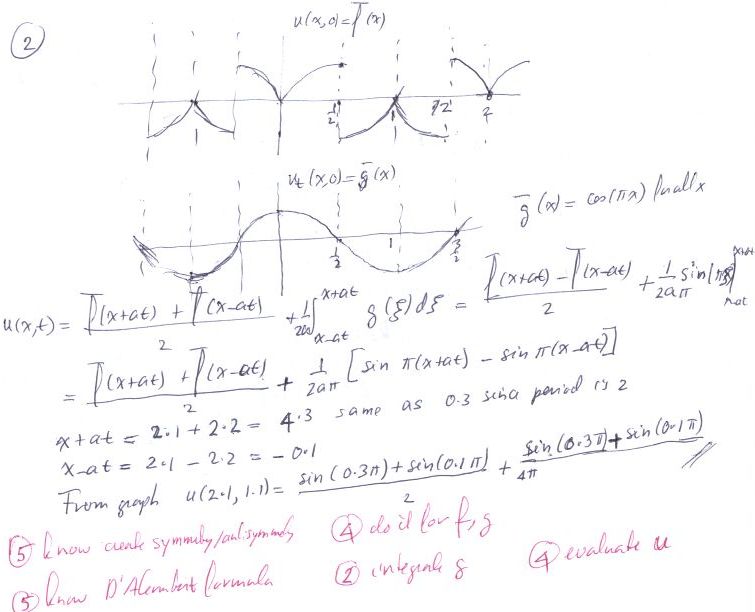 2
u(x,0) = f̄(x)
1 1/2 1 2
u_t(x,0) = ḡ(x)
ḡ(x) = cos(πx) for all x
1/2 1 3/2
u(x,t) = (f̄(x+at) + f̄(x-at))/2 + 1/2a ∫_{x-at}^{x+at} g(ξ)dξ = (f̄(x+at) - f̄(x-at))/2 + 1/2aπ sin(πξ)|_{x-at}^{x+at}
= (f̄(x+at) + f̄(x-at))/2 + 1/2aπ [sin π(x+at) - sin π(x-at)]
x+at = 2.1 + 2.2 = 4.3 same as 0.3 since period is 2
x-at = 2.1 - 2.2 = -0.1
From graph u(2.1, 1.1) = (sin(0.3π) + sin(0.1π))/2 + (sin(0.3π) + sin(0.1π))/4π
5 know create symmetry/antisymmetry 4 do it for f, g
5 know D'Alembert formula 2 integrate g 4 evaluate u